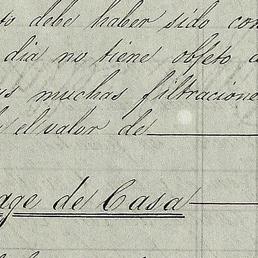 debe haber sido con
dia no tiene objeto
muchas filtracione
el valor de
age de Casa